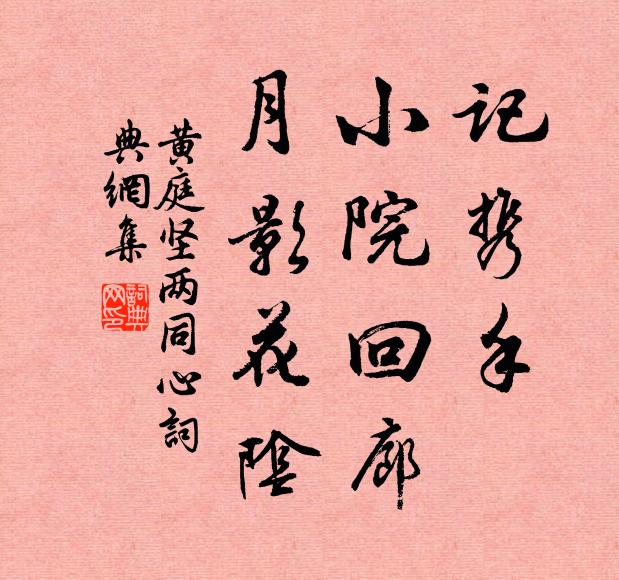 记携手
小院回廊
月影花陰
黄庭坚两同心詞
典網集
詞典网印